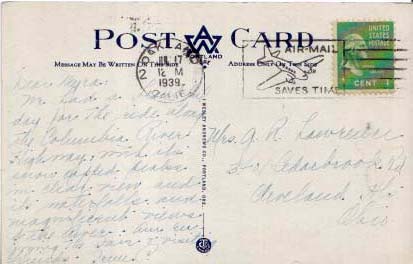 POST CARD
PORTLAND
MESSAGE MAY BE WRITTEN ON THIS SIDE
ADDRESS ONLY ON THIS SIDE
OAKLAND
JUL 17
12 M
1939
CALIF.
2
AIR-MAIL
SAVES TIME
UNITED STATES
1 CENT 1
Dear Myra:
We had a
day for the ride along
the Columbia River
Highway with its
snow capped peaks
in clear view and
its waterfalls and
magnificent views
of the river. Am en
Mrs. A. R. Lawrence
Cedarbrook Rd
Cleveland Hts
Ohio
WESLEY ANDREWS CO., PORTLAND, ORE.